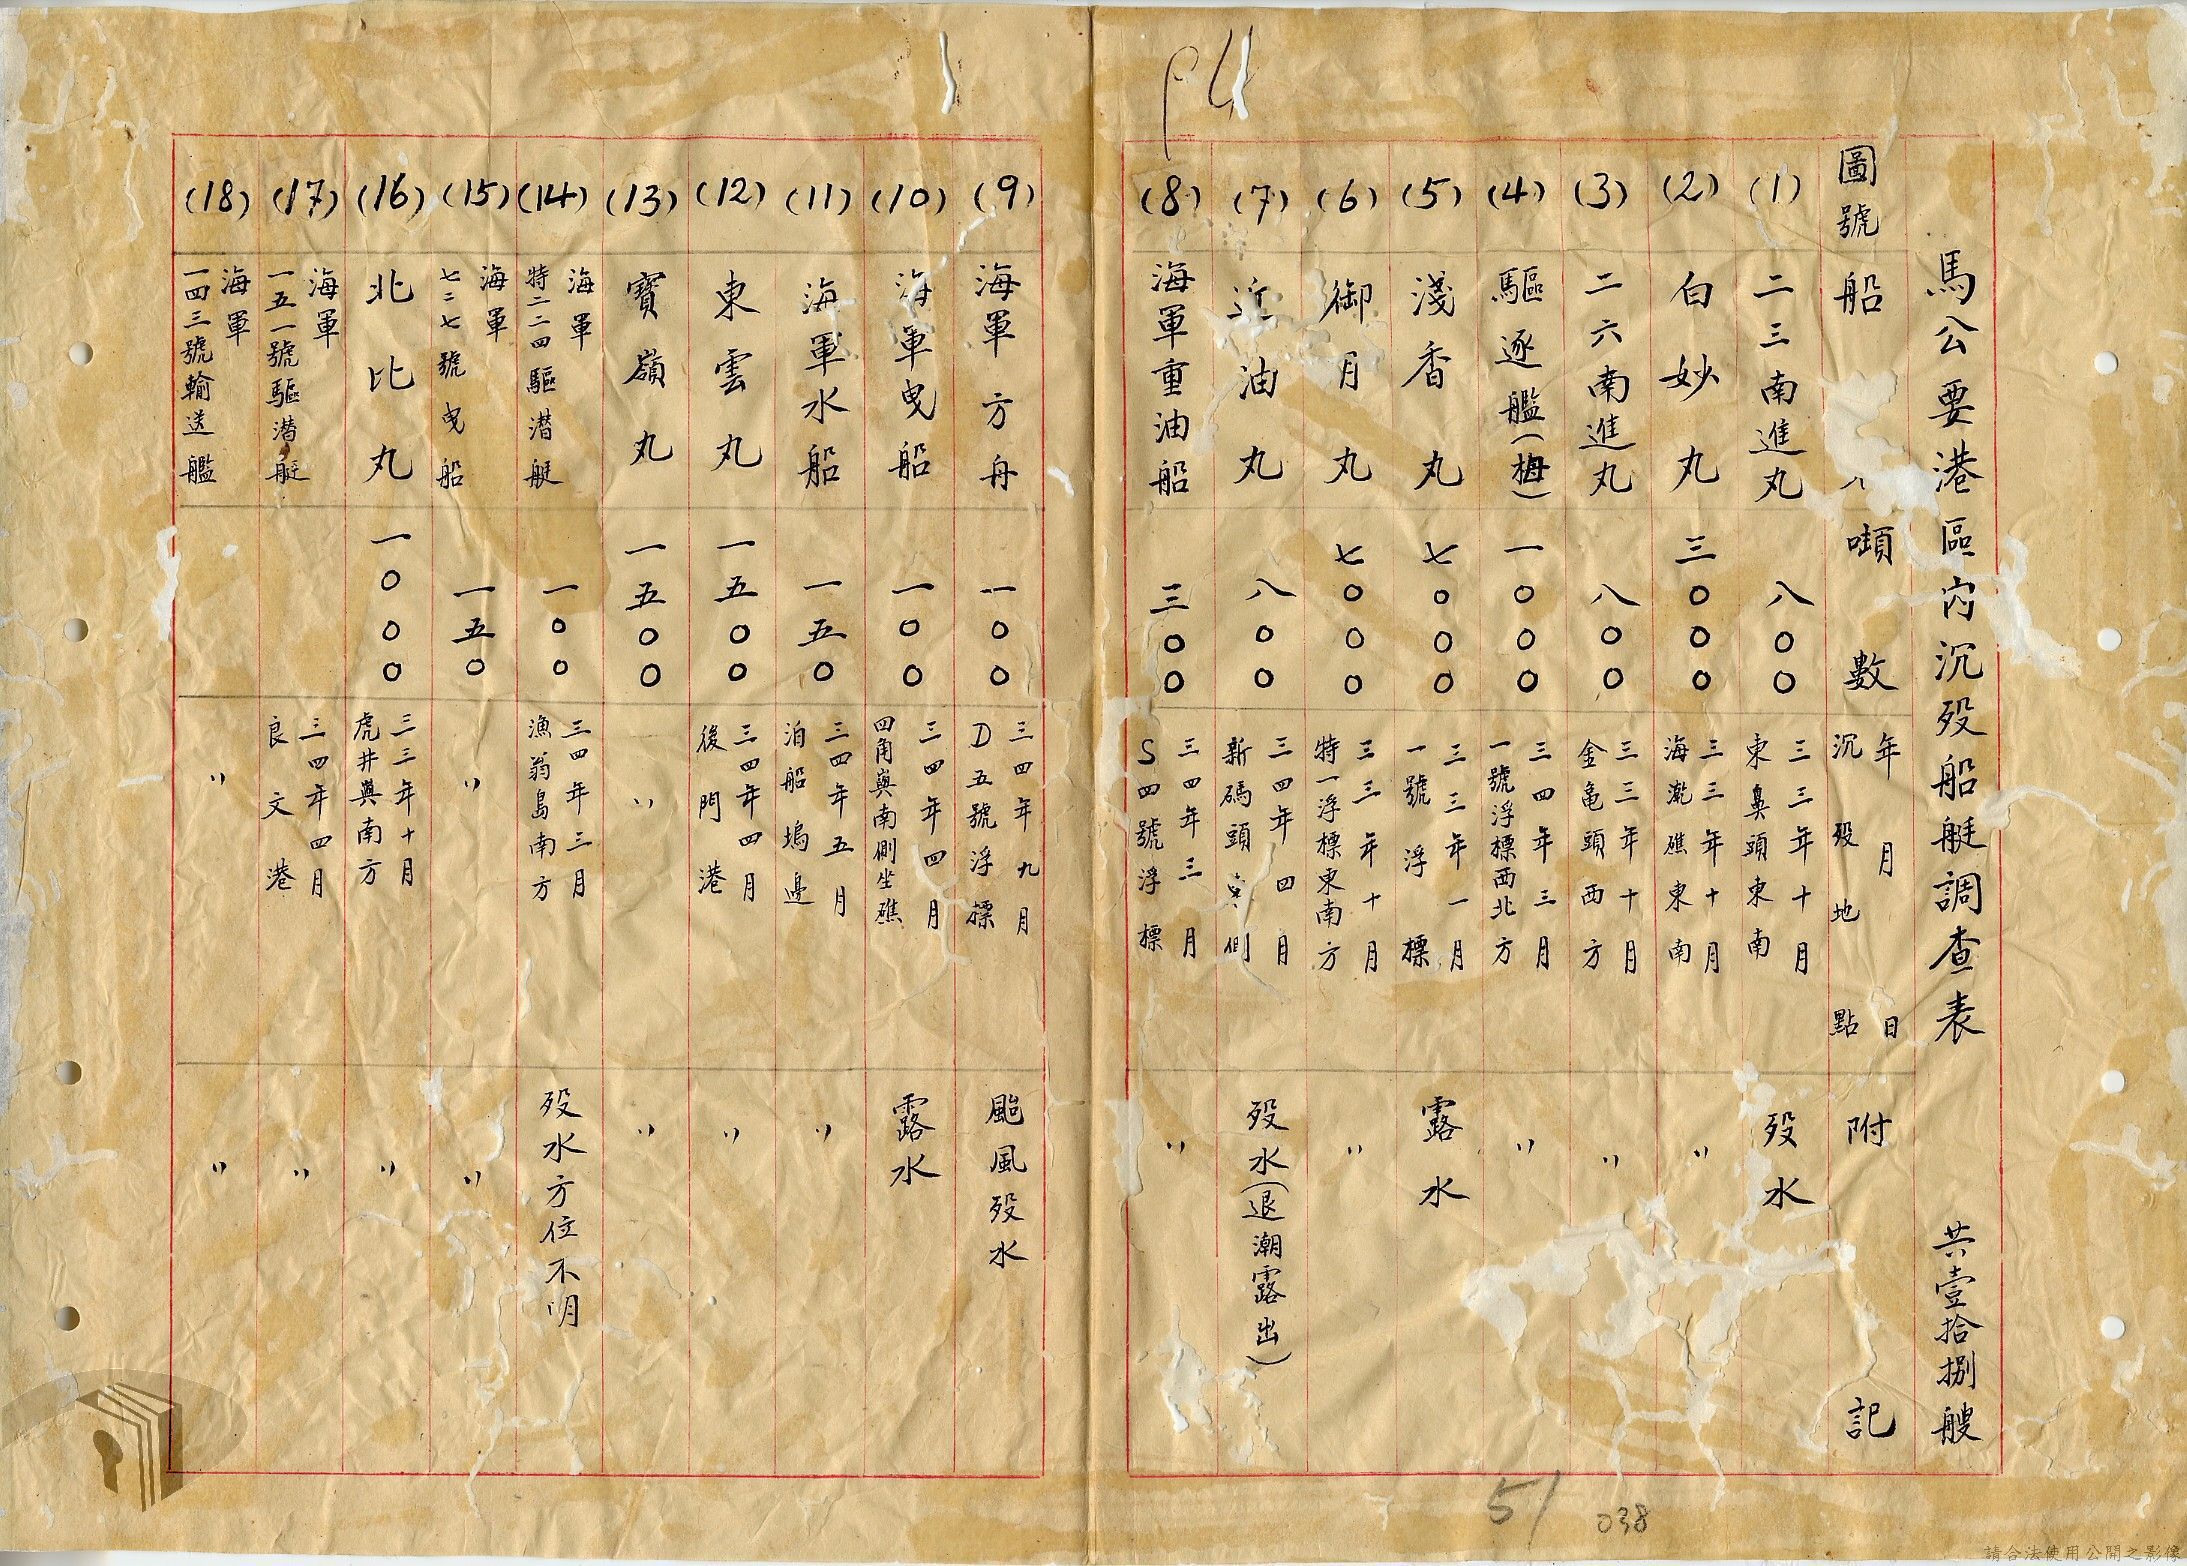 P4
馬公要港區內沉歿船艇調查表 共壹拾捌艘
圖號 船 噸數 年月日 沉歿地點 附記
(1) 二三南進丸 八〇〇 三三年十月 東鼻頭東南 歿水
(2) 白妙丸 三〇〇〇 三三年十月 海瀧礁東南 〃
(3) 二六南進丸 八〇〇 三三年十月 金龜頭西方 〃
(4) 驅逐艦(栂) 一〇〇〇 三四年三月 一號浮標西北方 〃
(5) 淺香丸 七〇〇〇 三三年一月 一號浮標 露水
(6) 御月丸 七〇〇〇 三三年十月 特一浮標東南方 〃
(7) 近油丸 八〇〇 三四年四月 新碼頭東側 歿水(退潮露出)
(8) 海軍重油船 三〇〇 三四年三月 S四號浮標 〃
(9) 海軍方舟 一〇〇 三四年九月 D五號浮標 颱風歿水
(10) 海軍曳船 一〇〇 三四年四月 四角嶼南側坐礁 露水
(11) 海軍水船 一五〇 三四年五月 泊船塢邊 〃
(12) 東雲丸 一五〇〇 三四年四月 後門港 〃
(13) 寶嶺丸 一五〇〇 〃 〃
(14) 海軍特二二四驅潛艇 一〇〇 三四年三月 漁翁島南方 歿水方位不明
(15) 海軍七二七號曳船 一五〇 〃 〃
(16) 北比丸 一〇〇〇 三三年十月 虎井與南方 〃
(17) 海軍一五一號驅潛艇 三四年四月 良文港 〃
(18) 海軍一四三號輸送艦 〃 〃
51
038
請合法使用公開之影像